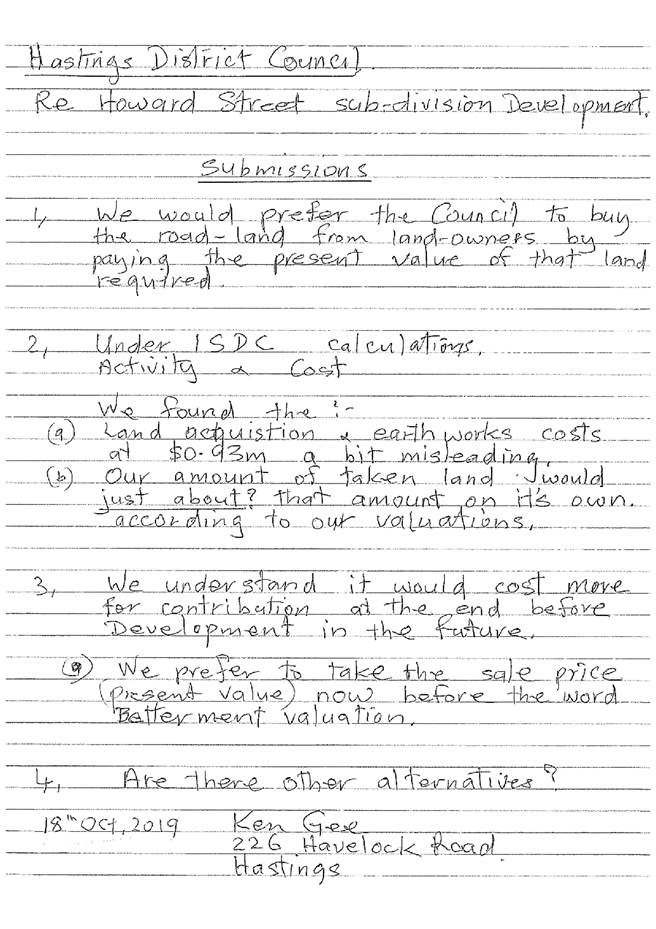 Hastings District Council.
Re Howard Street sub-division Development.
Submissions
1, We would prefer the Council to buy
the road-land from land-owners by
paying the present value of that land
required.
2, Under ISDC calculations.
Activity & Cost
We found the :-
(a) Land acquistion & earth works costs
at $0.93m a bit misleading.
(b) Our amount of taken land would
just about? that amount on it's own.
according to our valuations.
3, We understand it would cost more
for contribution at the end before
Development in the future.
(a) We prefer to take the sale price
(present value) now before the word
Batterment valuation.
4, Are there other alternatives?
18th Oct, 2019 Ken Gee
226 Havelock Road.
Hastings